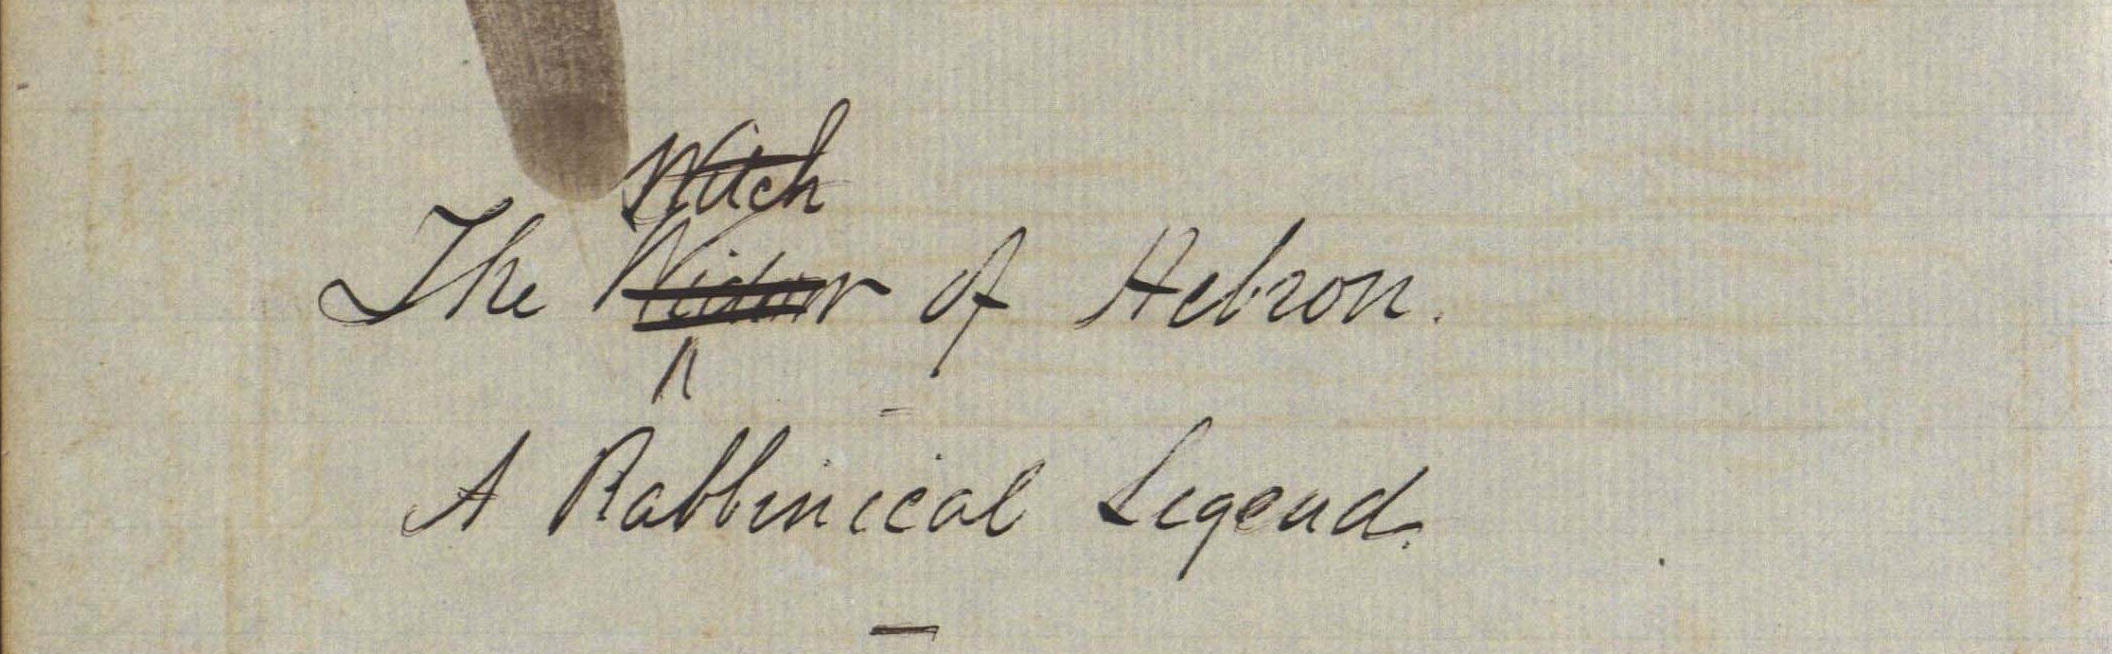 Witch
The Widow of Hebron.
A Rabbinical Legend.